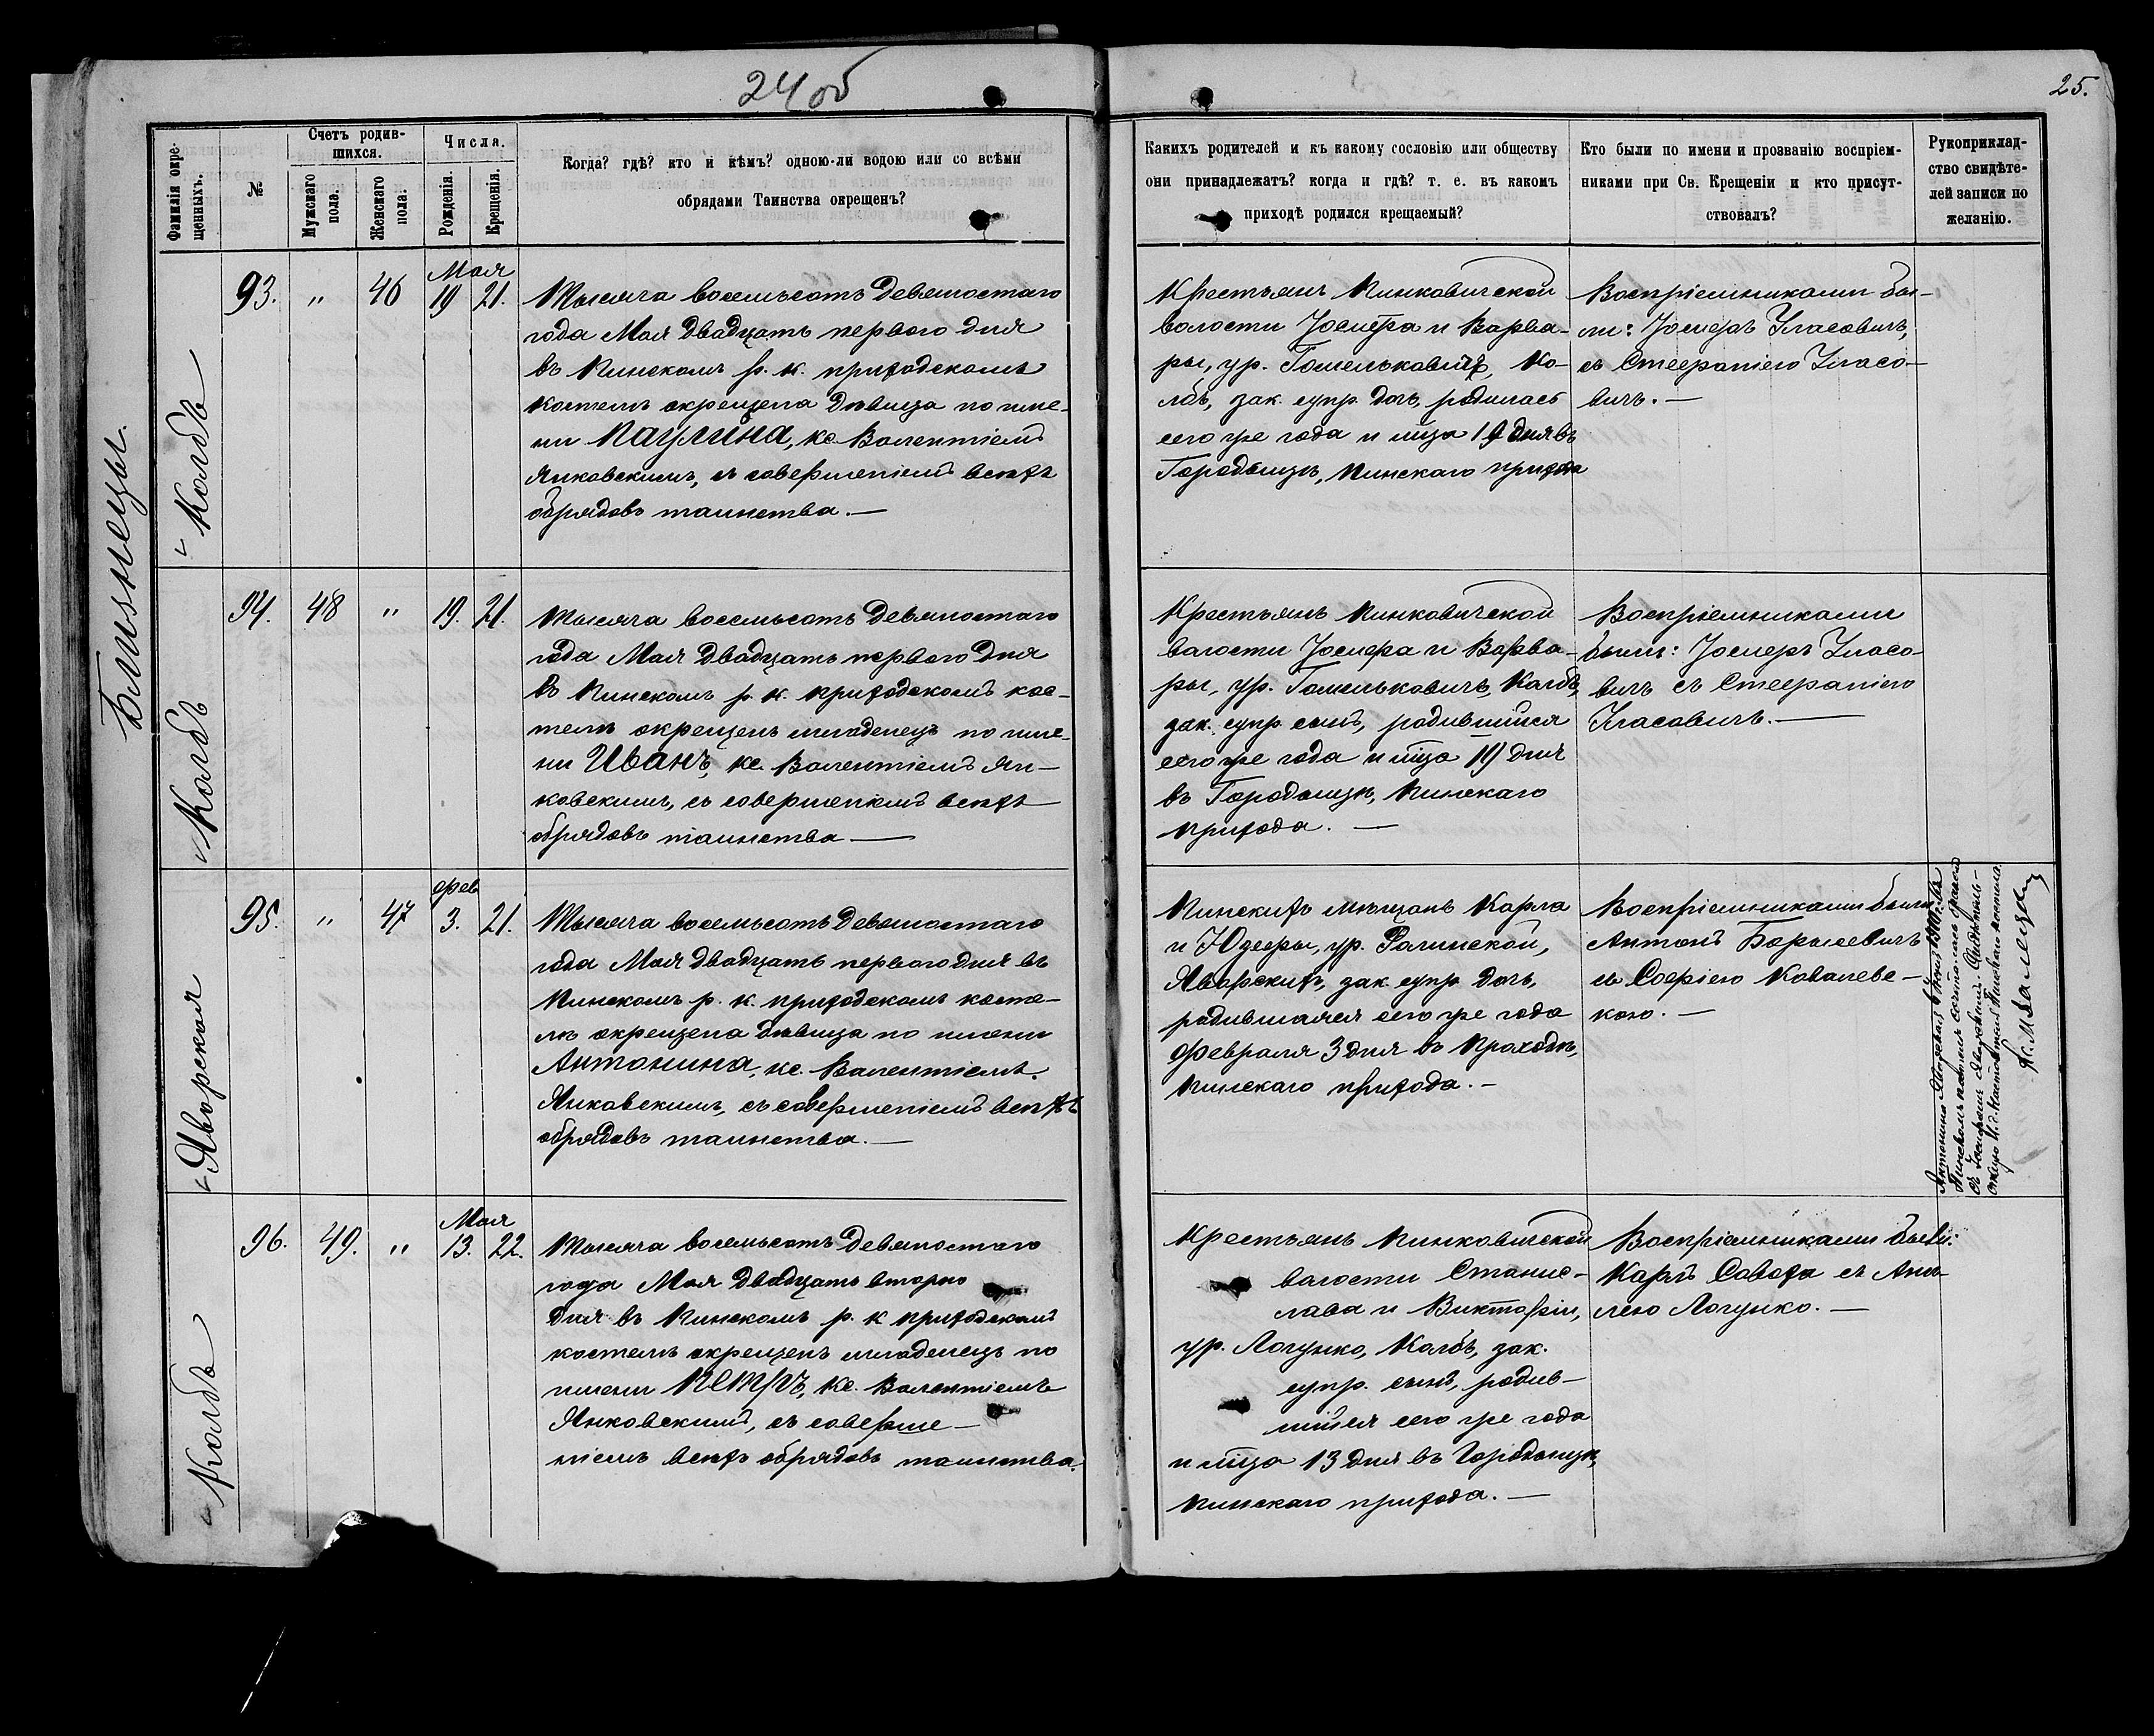 24об
25.
Фамилія окре-
щенныхъ.
№
Счетъ родив-
шихся.
Мужскаго
пола.
Женскаго
пола.
Числа.
Рожденія.
Крещенія.
Когда? гдѣ? кто и кѣмъ? одною-ли водою или со всѣми
обрядами Таинства окрещенъ?
Какихъ родителей и къ какому сословію или обществу
они принадлежатъ? когда и гдѣ? т. е. въ какомъ
приходѣ родился крещаемый?
Кто были по имени и прозванію воспріем-
никами при Св. Крещеніи и кто присут-
ствовалъ?
Рукоприклад-
ство свидѣте-
лей записи по
желанію.
Близнецы.
Колбъ
93. " 46 Мая 19 21.
Тысяча восемьсотъ девяностаго
года Мая двадцать перваго дня
въ Пинскомъ р. к. приходскомъ
костелѣ окрещена дѣвица по име-
ни Паулина, кс. Валентіемъ
Янковскимъ, съ совершеніемъ всѣхъ
обрядовъ таинства. —
Крестьянъ Пинковичской
волости Іосифа и Варва-
ры, ур. Гомельковичъ, Ко-
лбъ, зак. супр. дочь, родилась
сего же года и мца 19 дня въ
Городыщѣ, Пинскаго прихода
Воспріемниками бы-
ли: Іосифъ Уласовичъ,
съ Стефаніею Уласо-
вичъ. —
Колбъ
94. 48 " 19. 21.
Тысяча восемьсотъ девяностаго
года Мая двадцать перваго дня
въ Пинскомъ р. к. приходскомъ кос-
телѣ окрещенъ младенецъ по име-
ни Иванъ, кс. Валентіемъ Ян-
ковскимъ, съ совершеніемъ всѣхъ
обрядовъ таинства —
Крестьянъ Пинковичской
волости Іосифа и Варва-
ры, ур. Гомельковичъ, Колбъ,
зак. супр. сынъ, родившійся
сего же года и мца 19 дня
въ Городыщѣ, Пинскаго
прихода. —
Воспріемниками
были: Іосифъ Уласо-
вичъ съ Стефаніею
Уласовичъ. —
Яворская
95. " 47 фев 3. 21.
Тысяча восемьсотъ девяностаго
года Мая двадцать перваго дня въ
Пинскомъ р. к. приходскомъ косте-
лѣ окрещена дѣвица по имени
Антонина, кс. Валентіемъ
Янковскимъ, съ совершеніемъ всѣхъ
обрядовъ таинства. —
Пинскихъ мѣщанъ Карла
и Юзефы, ур. Рагинской,
Яворскихъ, зак. супр. дочь,
родившаяся сего же года
февраля 3 дня въ Проходѣ,
Пинскаго прихода. —
Воспріемниками были
Антонъ Борысевичъ
съ Софіею Ковалевс-
кою. —
Антонина Яворская
Пинскомъ костелѣ сочеталась бракомъ
съ
Колбъ
96. 49. " Мая 13. 22.
Тысяча восемьсотъ девяностаго
года Мая двадцать втораго
дня въ Пинскомъ р. к. приходскомъ
костелѣ окрещенъ младенецъ по
имени Петръ, кс. Валентіемъ
Янковскимъ, съ соверше-
ніемъ всѣхъ обрядовъ таинства.
Крестьянъ Пинковичской
волости Станис-
лава и Викторіи,
ур. Логушко, Колбъ, зак.
супр. сынъ, родив-
шійся сего же года
и мца 13 дня въ Городыщѣ,
Пинскаго прихода. —
Воспріемниками были:
Карлъ Саваха съ Ане-
лею Логушко. —